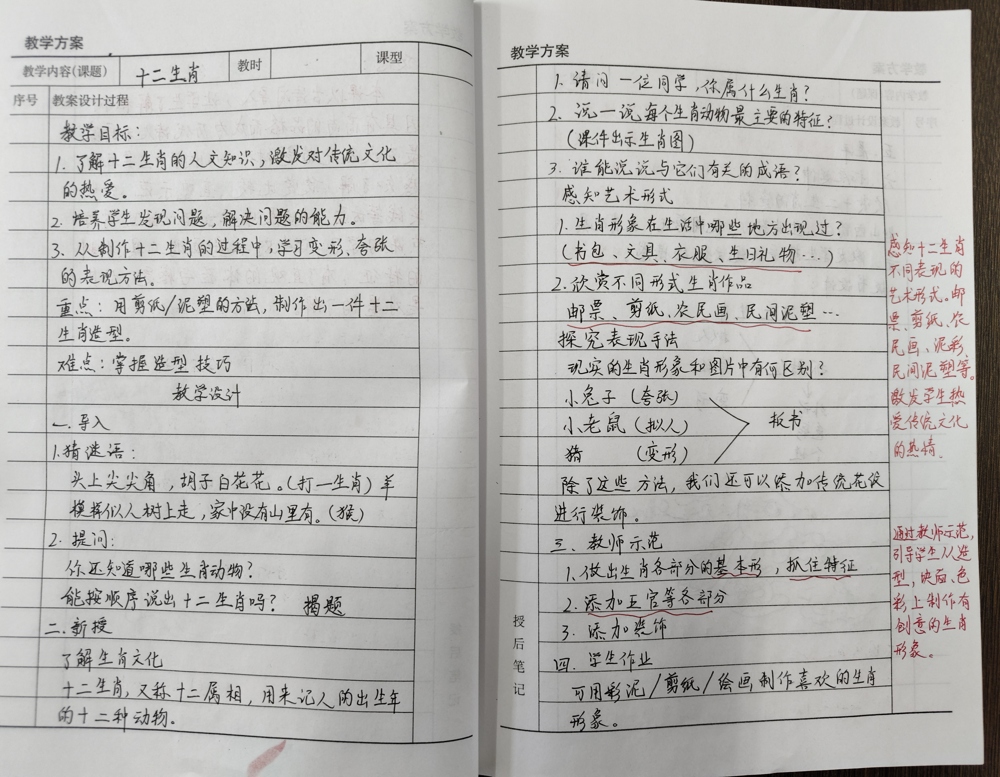 教学方案
教学内容(课题) 十二生肖 教时 课型
序号 教案设计过程
教学目标：
1. 了解十二生肖的人文知识，激发对传统文化
的热爱。
2. 培养学生发现问题，解决问题的能力。
3. 从制作十二生肖的过程中，学习变形、夸张
的表现方法。
重点：用剪纸/泥塑的方法，制作出一件十二
生肖造型。
难点：掌握造型技巧
教学设计
一.导入
1.猜谜语：
头上尖尖角，胡子白花花。(打一生肖) 羊
模样似人树上走，家中没有山里有。(猴)
2. 提问：
你还知道哪些生肖动物？
能按顺序说出十二生肖吗？ 揭题
二.新授
了解生肖文化
十二生肖，又称十二属相，用来记人的出生年
的十二种动物。
教学方案
1. 请问一位同学，你属什么生肖？
2. 说一说每个生肖动物最主要的特征？
(课件出示生肖图)
3. 谁能说说与它们有关的成语？
感知艺术形式
1. 生肖形象在生活中哪些地方出现过？
(书包、文具、衣服、生日礼物…)
2. 欣赏不同形式生肖作品
邮票、剪纸、农民画、民间泥塑…
探究表现手法
现实的生肖形象和图片中有何区别？
小兔子 (夸张)
小老鼠 (拟人) 板书
猪 (变形)
除了这些方法，我们还可以添加传统花纹
进行装饰。
三、教师示范
1. 做出生肖各部分的基本形，抓住特征
2. 添加五官等各部分
3. 添加装饰
四. 学生作业
可用彩泥/剪纸/绘画制作喜欢的生肖
形象。
授后笔记
感知十二生肖
不同表现的
艺术形式。邮
票、剪纸、农
民画、泥彩
民间泥塑等。
激发学生热
爱传统文化
的热情.
通过教师示范，
引导学生从造
型，色
彩上制作有
创意的生肖
形象。